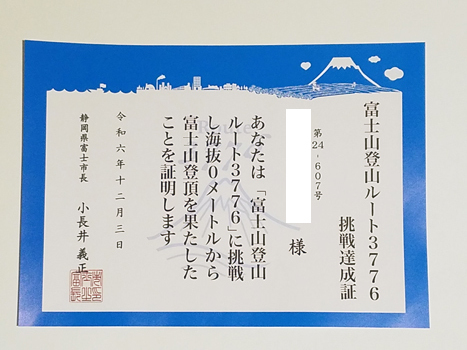 富士山登山ルート3776
挑戦達成証
第24-607号
様
あなたは「富士山登山
ルート3776」に挑戦
し海抜0メートルから
富士登頂を果たした
ことを証明します
令和六年十二月三日
静岡県富士市長　小長井　義正